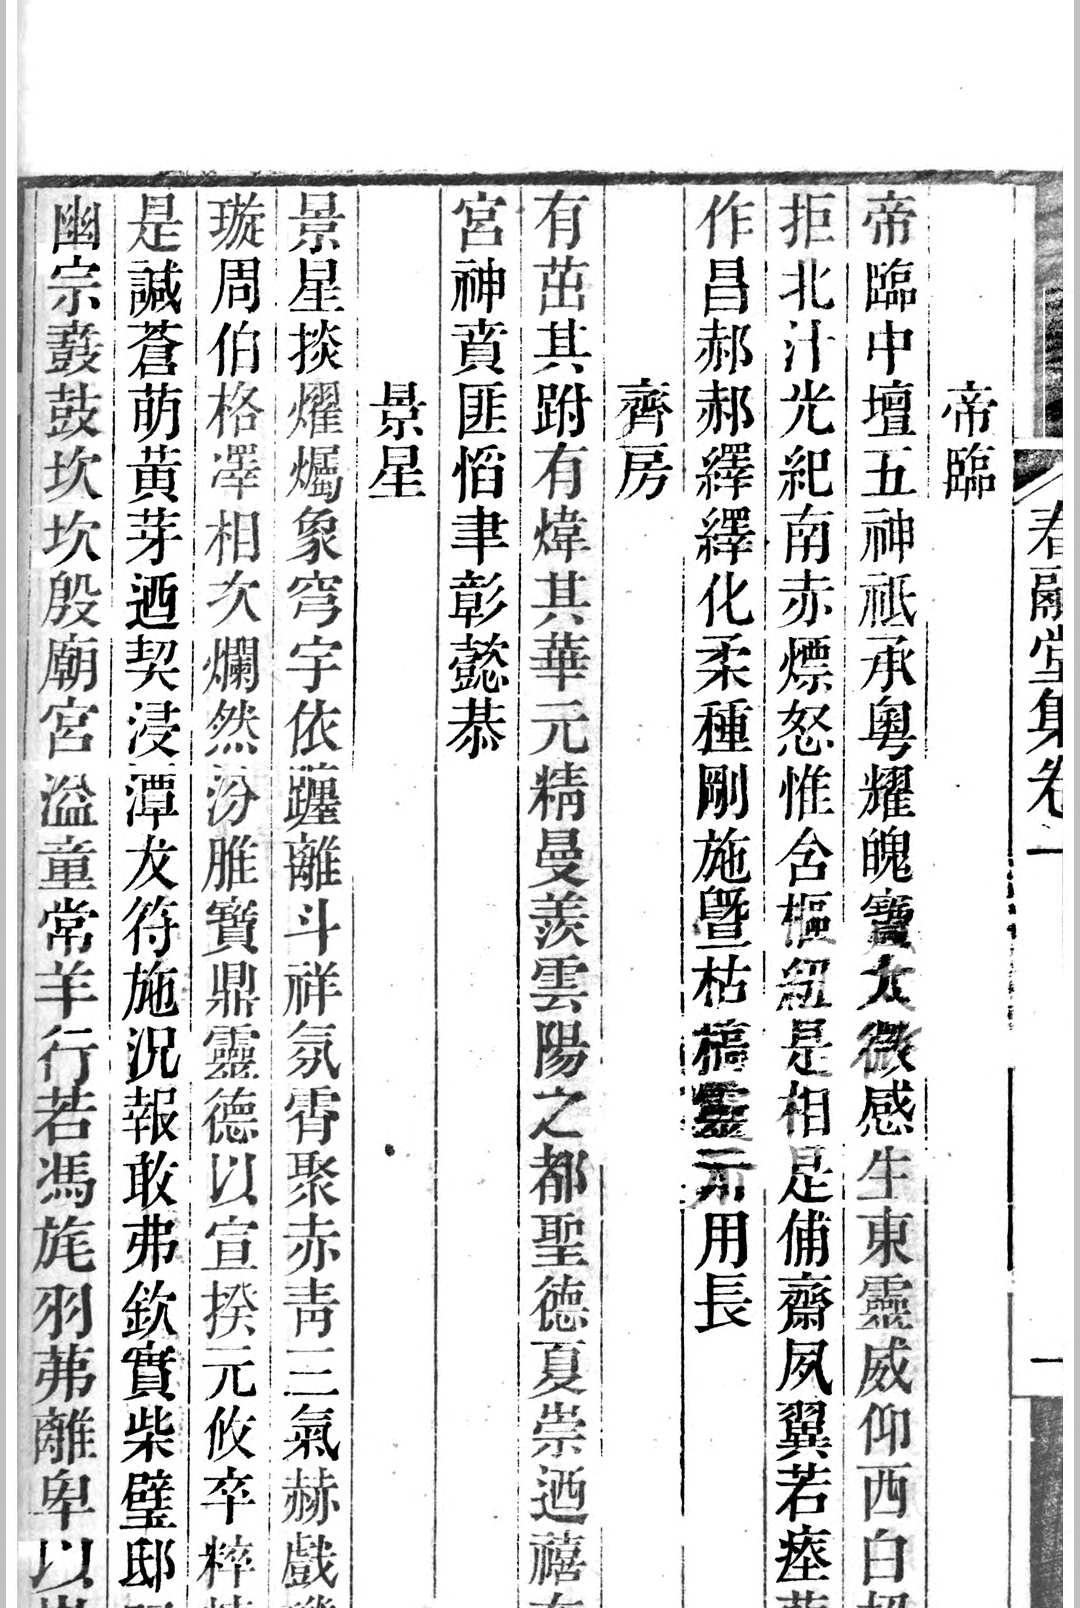 春融堂集卷一
一
帝臨
帝臨中壇五神祇承粵耀魄寶太微感生東靈威仰西白招
拒北汁光紀南赤熛怒惟含樞紐是相是俌齋夙翼若瘞
作昌郝郝繹繹化柔種剛施曁枯槁靈示用長
齊房
有茁其跗有煒其華元精曼羨雲陽之都聖德夏崇迺禧
宮神賁匪慆聿彰懿恭
景星
景星掞燿爥象穹宇依躔離斗祥氛霄聚赤青三氣赫戲
璇周伯格澤相次爛然汾脽寶鼎靈德以宣揆元攸卒粹
是諴蒼萌黃芽迺契浸潭犮待施況報敢弗欽實柴璧邸
幽宗鼖鼓坎坎殷廟宮溢童常羊行若馮旄羽茀離卑以